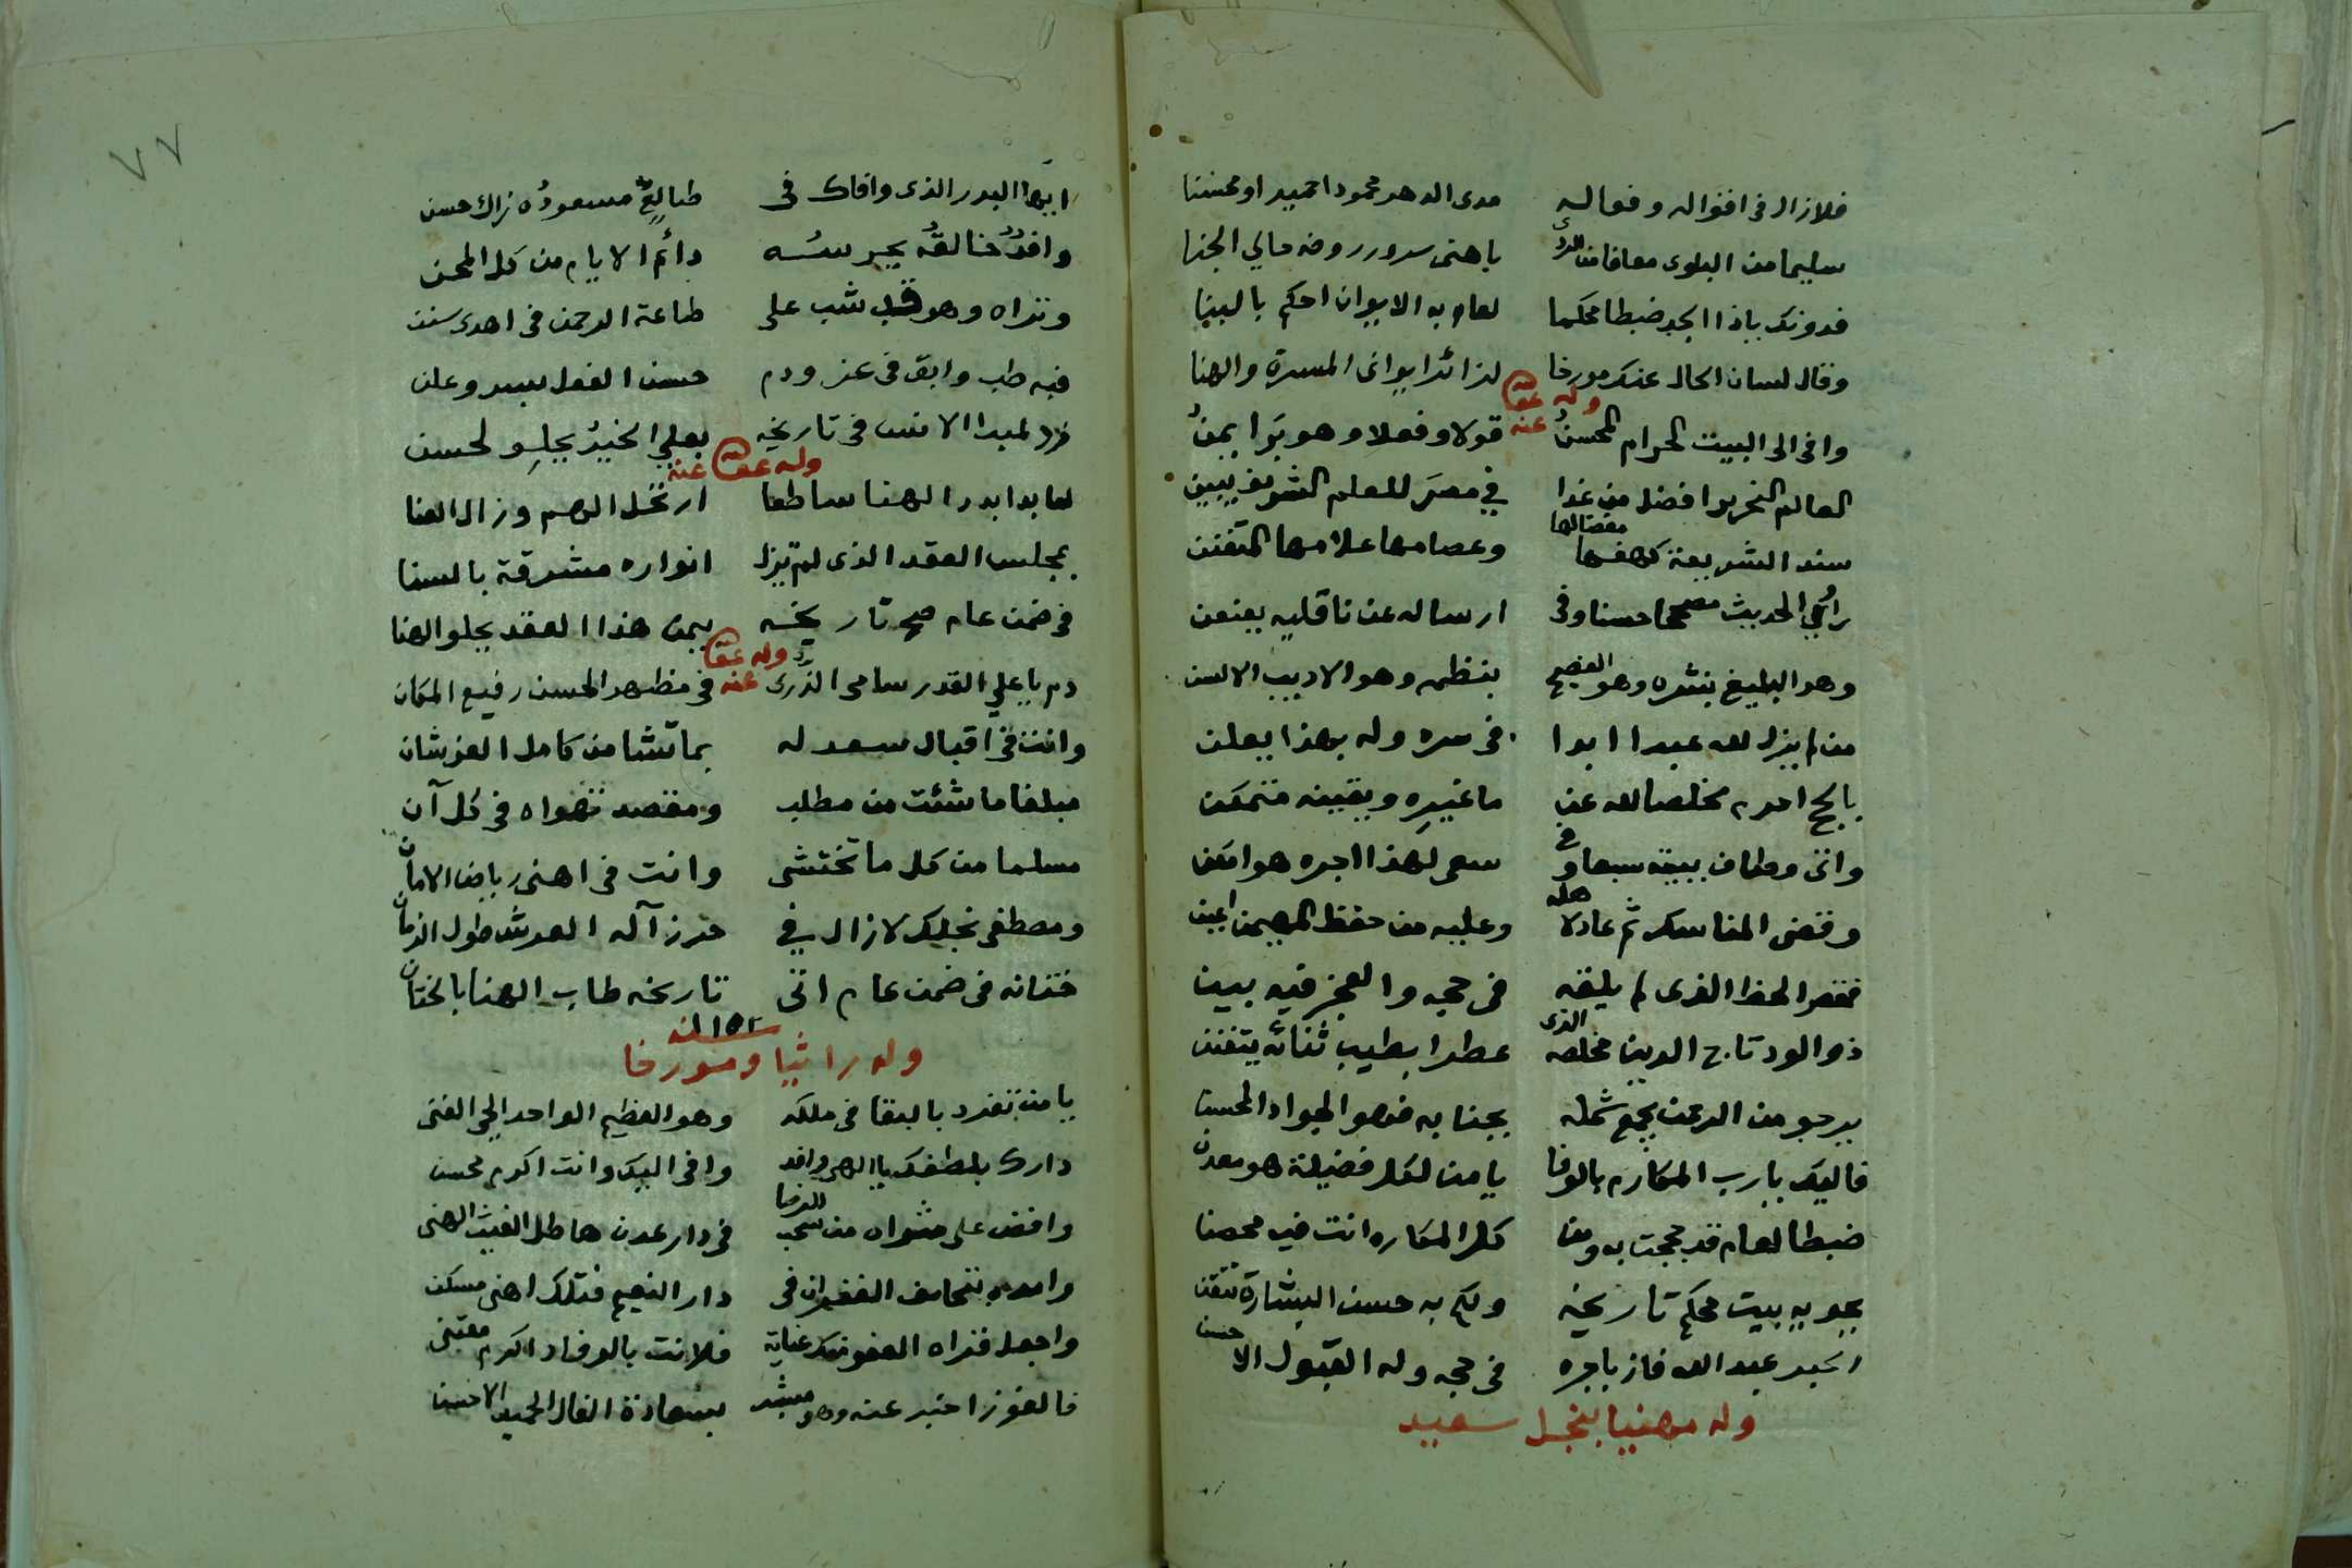 فلازال فى اقواله وفعاله مدى الدهر محمودا حميدا ومحسنا
سليما من البلوى معافا من الردى باهنى سرور روضه حالي الجنا
فدونك ياذا المجد ضبطا محكما لعام به الايوان احكم بالبنا
وقال لسان الحال عنك مورخا لذا ئد ايوانى المسرة والهنا
وله عفا الله عنه
وافى الى البيت الحرام المحسنُ قولا وفعلا وهو بَرا يمنُ
العالم النحرير افضل من غدا في مصرَ للعلم الشريف يبين
سند الشريعة كهفها مفضالها وعصامها علامها المتفنن
راوي الحديث مصححا حسنا وفى ارساله عن ناقليه يعنعن
وهو البليغ بنثره وهو الفصيح بنظمه وهو الاديب الالسن
من لم يزل لله عبدا ابدا فى سره وله بهذا يعلن
بالحج احرم مخلصا لله عن ما غيرِه ويقينه متمكن
واتى وطاف ببيته سبعا وفى سعى لهذا اجره هو امكن
وقضى المناسك ثم عاد لاهله وعليه من حفظ المهيمن اعين
فى حجه والعجز فيه بين
ذو الود تاج الدين مخلصه الذى عطرا بطيب ثنائه يتفنن
يرجو من الرحمن يجمع شمله بجنابه فهو الجواد المحسن
فاليك يارب المكارم بالوفا يا من لكل فضيلة هو معدن
ضبطا لعام قد حججت به ومن كل المكاره انت فيه محصن
يحويه بيت محكم تاريخه ولكم به حسن البشارة تتقن
الحبر عبد الله فاز باجره فى حجه وله القبول الاحسن
وله مهنيا بنجل سعيد
٧٧
ايها البدر الذى وافاك فى طالعٍ مسعودُه زاك حسن
دائم الايام من كل المحن
وتراه وهو قد شب على طاعة الرحمن فى اهدى سنن
فيه طب وابق فى عز ودم حسن الفعل بسر وعلن
فى تاريخه بعلي الخير يجلو لحسن
وله عفا الله عنه
لما بدا بدر الهنا ساطعا ارتحل الهم وزال العنا
بمجلس العقد الذى لم تزل انواره مشرقة بالسنا
فى ضمن عام صح تاريخه بيمن هذا العقد يجلو الهنا
وله عفا الله عنه
دم يا علي القدر سامى الذرى فى مظهر الحسن رفيع المكان
وانت فى اقبال سعد له بما تشا من كامل العز شان
مبلغا ما شئت من مطلب ومقصد تهواه فى كل آن
مسلما من كل ما تختشى وانت فى اهنى رياض الامان
ومصطفى نجلك لازال في حرز آله العرش طول الزمان
ختانه فى ضمن عام اتى تاريخه طاب الهنا بالختان
وله راثيا ومورخا
يا من تفرد بالبقا فى ملكه وهو العظيم الواحد الحي الغنى
دارك بلطفك يا الهى وافد وافى اليك وانت اكرم محسن
وافض على مثواه من سحب الرضا فى دار عدن هاطل الغيث الهنى
دار النعيم فتلك اهنى مسكن
واجعل قراه العفو منك عناية فلانت بالوفاد اكرم معتنى
فالفوز اخبر عنه وهو مبشر بسعادة الفال الحميد الاحسن